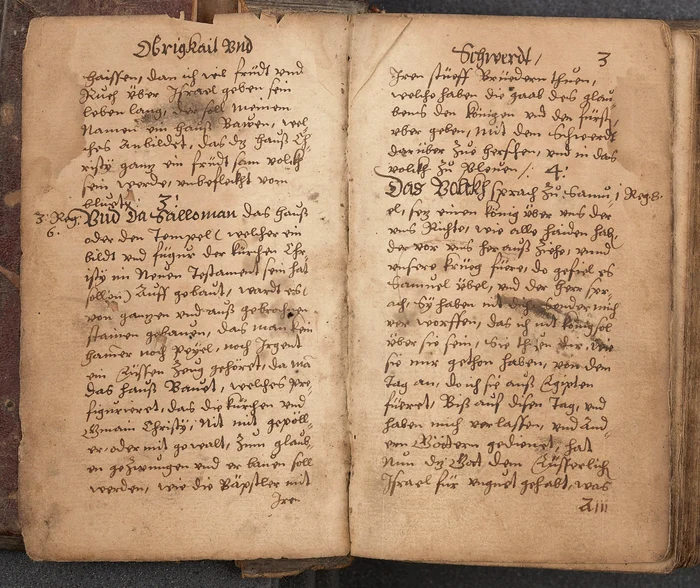 Obrigkait Vnd
haissen, dan ich wil früdt vnd
Ruch über Israel geben sein
leben lang, der soll meinem
Namen ein hauß Bawen, wel
ches Anbildet, das dz hauß Ch-
risty ganz ein frudt sam volckh
sein werde, vnbefleckt vom
bluett. 3.
3. Reg: 6. Vnd Da Salloman das hauß
oder den Tempel (welcher ein
bildt vnd fügur der kürchen Chr,
isty im Neuen Testament sein hat
sollen) Auff gebaut, wardt es
von ganzen vnd auß gebrochnen
stainen gehauen, das man kein
hamer noch peyel, noch Irgent
ein Eüssen Zeug gehöret, da ma
das hauß Bauet, welches pre,
figurieret, das die kürchen vnd
Gmain Christy, Nit mit gepöll,
er, oder mit gewalt, Zum glaub,
en gezwungen vnd er bauen soll
werden, wie die Bäpstler mit
Iren
Schwerdt, 3
Iren stüeff Brüedern thuen,
welche haben die gaab des glau,
bens den königen vnd den fürst,
über geben, Mit dem Schwerdt
darüber Zue herschen, vnd in das
volckh Zu Pleuen /. 4.
Das Volckh sprach Zu Samu, 1 Reg 8.
el, sez einen könig über vns der
vns Richte, wie alle haiden hab,
der vor vns her auß Ziehe, vnnd
vnsere krüeg füere, do gefiel es
Samuel übel, vnd der herr spr,
ach, Sy haben nit dich sonder mich
ver worffen, das ich nit könig sol
über sie sein, Sie thuen dir, wie
sie mir gethon haben, von dem
Tag an, do ich sie auß Egipten
füeret, Biß auf disen Tag, vnd
haben mich verlassen, vnd And,
ern Göttern gedienet, hat
Nun dz Gott dem Eüsserlich
Israel für vnguet gehabt, was
A iii